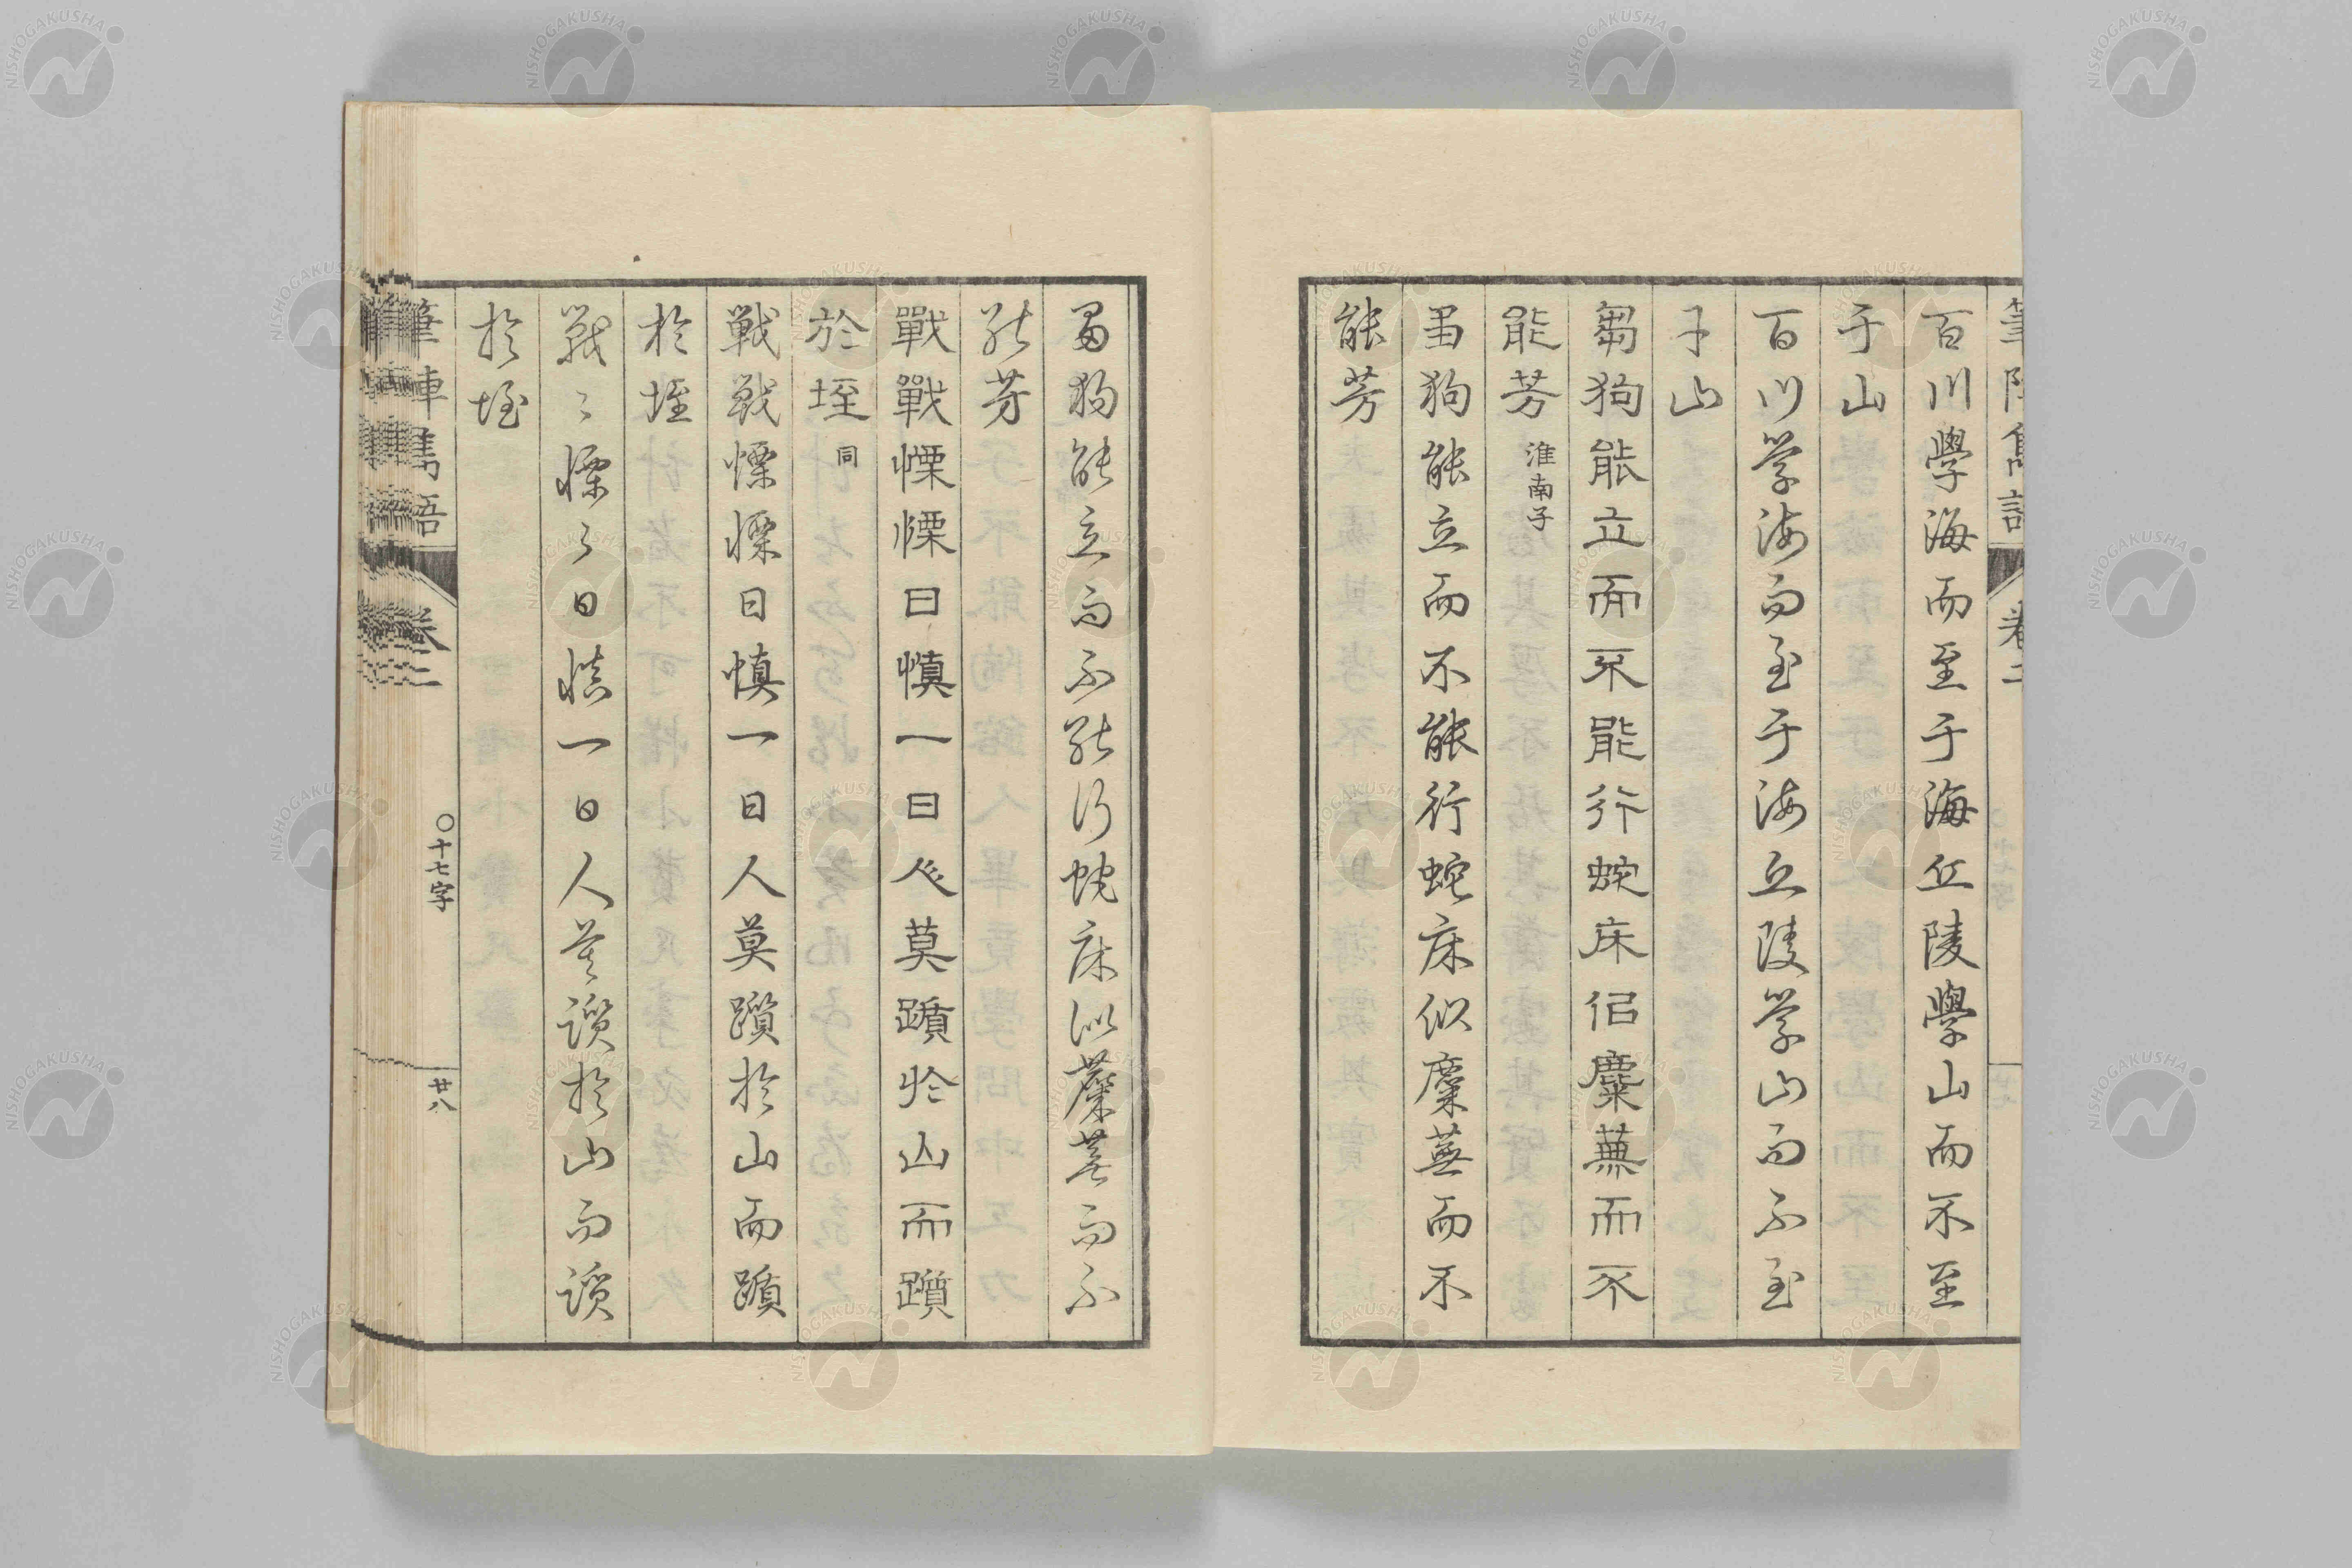 筆陣雋語 卷二
百川學海而至于海丘陵學山而不至
于山
百川学海而至于海丘陵学山而不至
于山
芻狗能立而不能行蛇床侣麋蕪而不
能芳 淮南子
芻狗能立而不能行蛇床似麋蕪而不
能芳
芻狗能立而不能行蛇床似蘪蕪而不
能芳
戰戰慄慄日愼一日人莫躓於山而躓
於垤 同
戦戦慄慄日慎一日人莫躓於山而躓
於垤
戦〻慄〻日慎一日人莫躓於山而躓
於垤
筆陣雋語 卷二 〇十七字 廿八
NISHOGAKUSHA